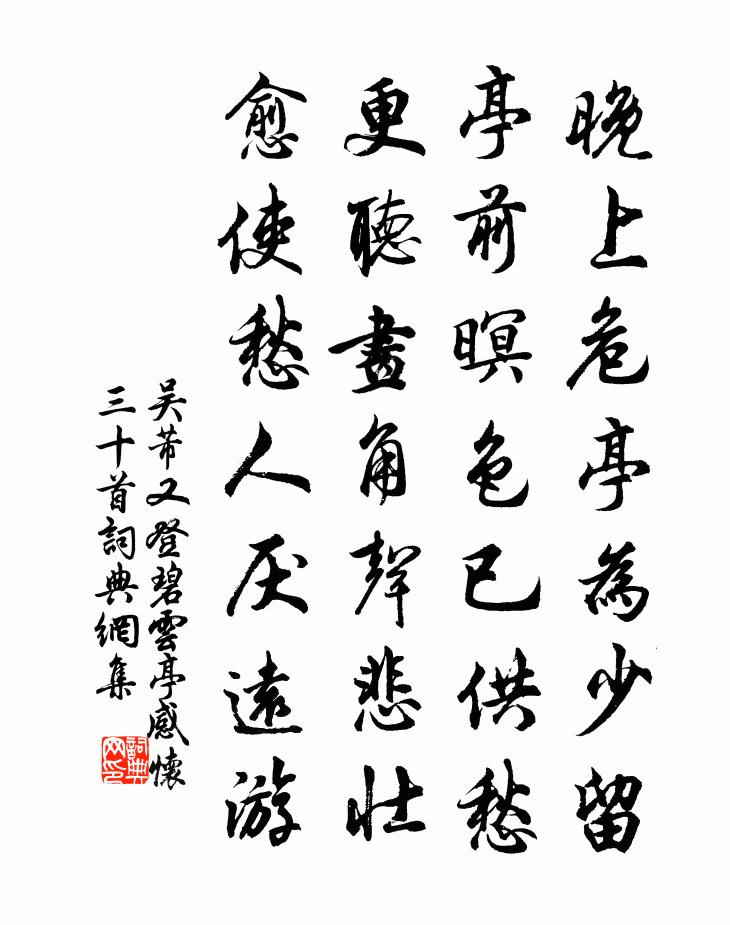 晚上危亭為少留
亭前暝色已供愁
更聽畫角聲悲壯
愈使愁人厌遠游
吴芾又登碧雲亭感懷
三十首詞典網集
詞典网印